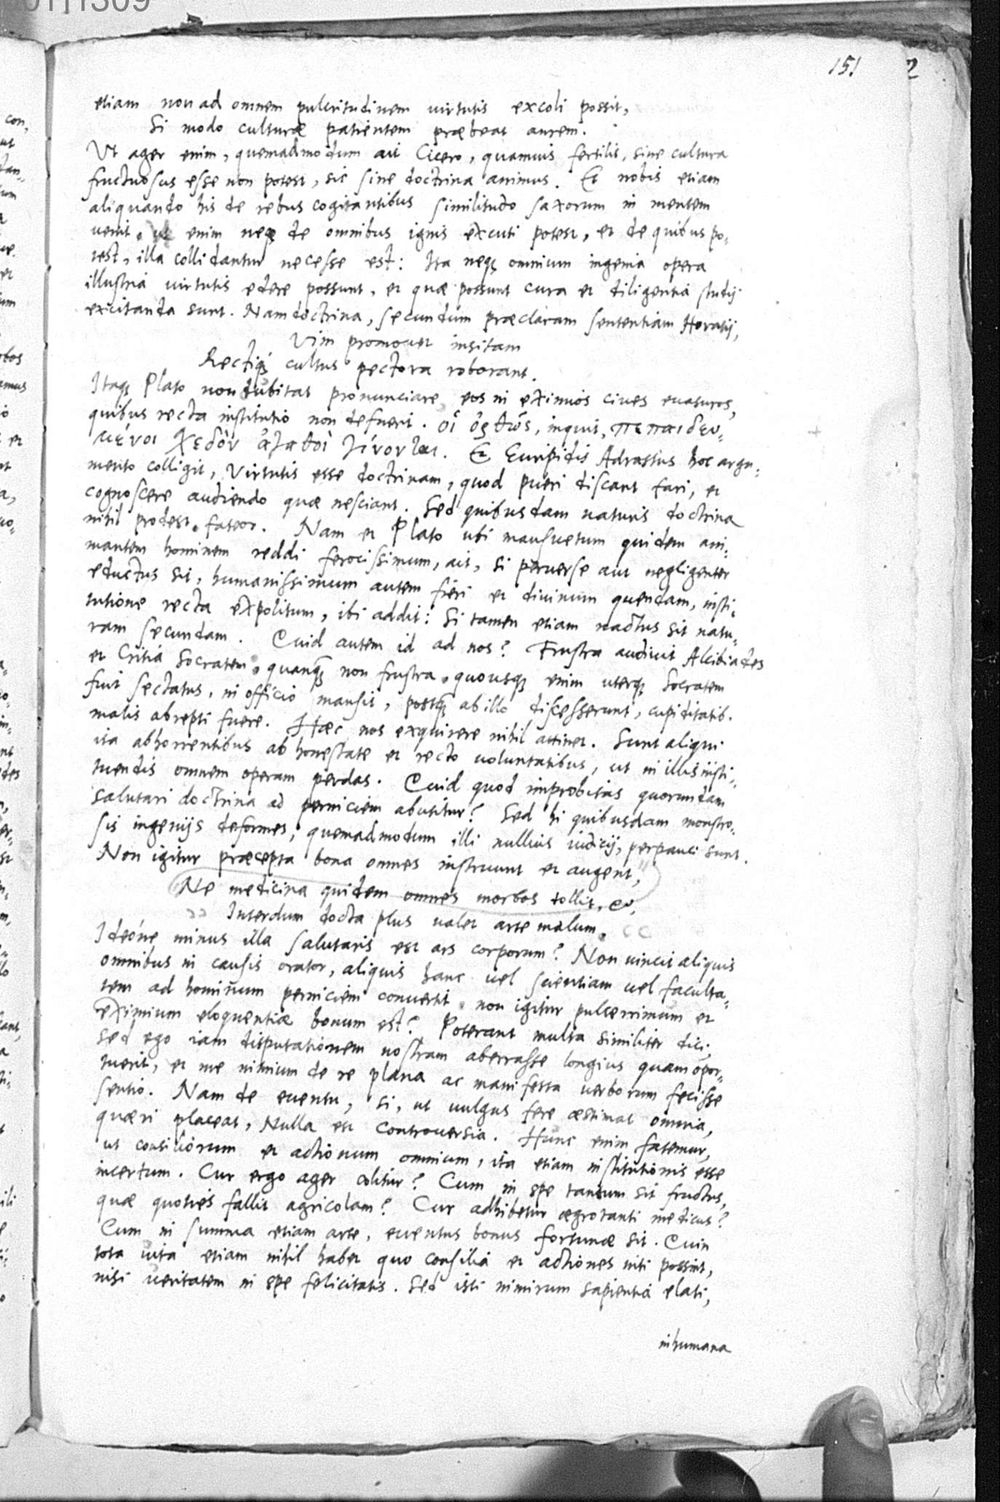 151 2
etiam non ad omnem pulcritudinem virtutis excoli possit,
Si modo culturæ patientem præbeat aurem.
Ut ager enim, quemadmodum ait Cicero, quamuis fertilis, sine cultura
fructuosus esse non potest, sic sine doctrina animus. Et nobis etiam
aliquando his de rebus cogitantibus similitudo saxorum in mentem
uenit. ut enim neq de omnibus ignis excuti potest, et de quibus po-
test, illa collidantur necesse est: Ita neq omnium ingenia opera
illustria virtutis edere possunt, et quæ possunt cura et diligentia studij
excitanda sunt. Nam doctrina, secundum præclaram sententiam Horatij,
Vim promouet insitam
Rectiq cultus pectora roborant.
Itaq Plato non dubitat pronunciare, eos in eximios ciues euasuros,
quibus recta institutio non defuerit. οἱ ὀρθῶς, inquit, πεπαιδευ-
μένοι χεδὸν ἀγαθοὶ γίνονται. Et Euripidis Adrastus hoc argu-
mento colligit, Virtutis esse doctrinam, quod pueri discant fari, et
cognoscere audiendo quæ nesciant. Sed quibusdam naturis doctrina
nihil prodest. fateor. Nam et Plato ubi mansuetum quidem ani-
mantem hominem reddi ferocissimum, ait, si peruerse aut negligenter
eductus sit, humanissimum autem fieri et diuinum quendam, insti-
tutione recta expolitum, ibi addit: Si tamen etiam nactus sit natu-
ram secundam. Quid autem id ad nos? Frustra audiuit Alcibiades
et Critia Socratem, quanq non frustra, quousq enim uterq Socratem
fuit sectatus, in officio mansit, postq ab illo discesserunt, cupiditatib.
malis abrepti fuere. Hæc nos exquirere nihil attinet. Sunt aliqui
ita abhorrentibus ab honestate et recto uoluntatibus, ut in illis insti-
tuendis omnem operam perdas. Quid quod improbitas quorundam
salutari doctrina ad perniciem abutitur? Sed hi quibusdam monstro-
sis ingenijs deformes, quemadmodum illi nullius iudicij, perpauci sunt.
Non igitur præcepta bona omnes instruunt et augent,
Ne medicina quidem omnes morbos tollit, et.
Interdum docta plus ualet arte malum.
Ideóne minus illa salutaris est ars corporum? Non uincit aliquis
omnibus in causis orator, aliquis hanc uel scientiam uel faculta-
tem ad hominum perniciem conuertit. non igitur pulcerrimum et
eximium eloquentiæ bonum est? Poterant multa similiter dici,
Sed ego iam disputationem nostram aberrasse longius quam opor-
tuerit, et me nimium de re plana ac manifesta uerborum fecisse
sentio. Nam de euentu, si, ut uulgus fere æstimat omnia,
quæri placeat, Nulla est controuersia. Hunc enim fatemur,
ut consiliorum et actionum omnium, ita etiam institutionis esse
incertum. Cur ergo ager colitur? Cum in spe tantum sit fructus,
quæ quoties fallit agricolam? Cur adhibetur ægrotanti medicus?
Cum in summa etiam arte, euentus bonus fortunæ sit. Cum
tota uita etiam nihil habet quo consilia et actiones niti possint,
nisi ueritatem in spe felicitatis. Sed isti nimirum sapientia elati,
inhumana